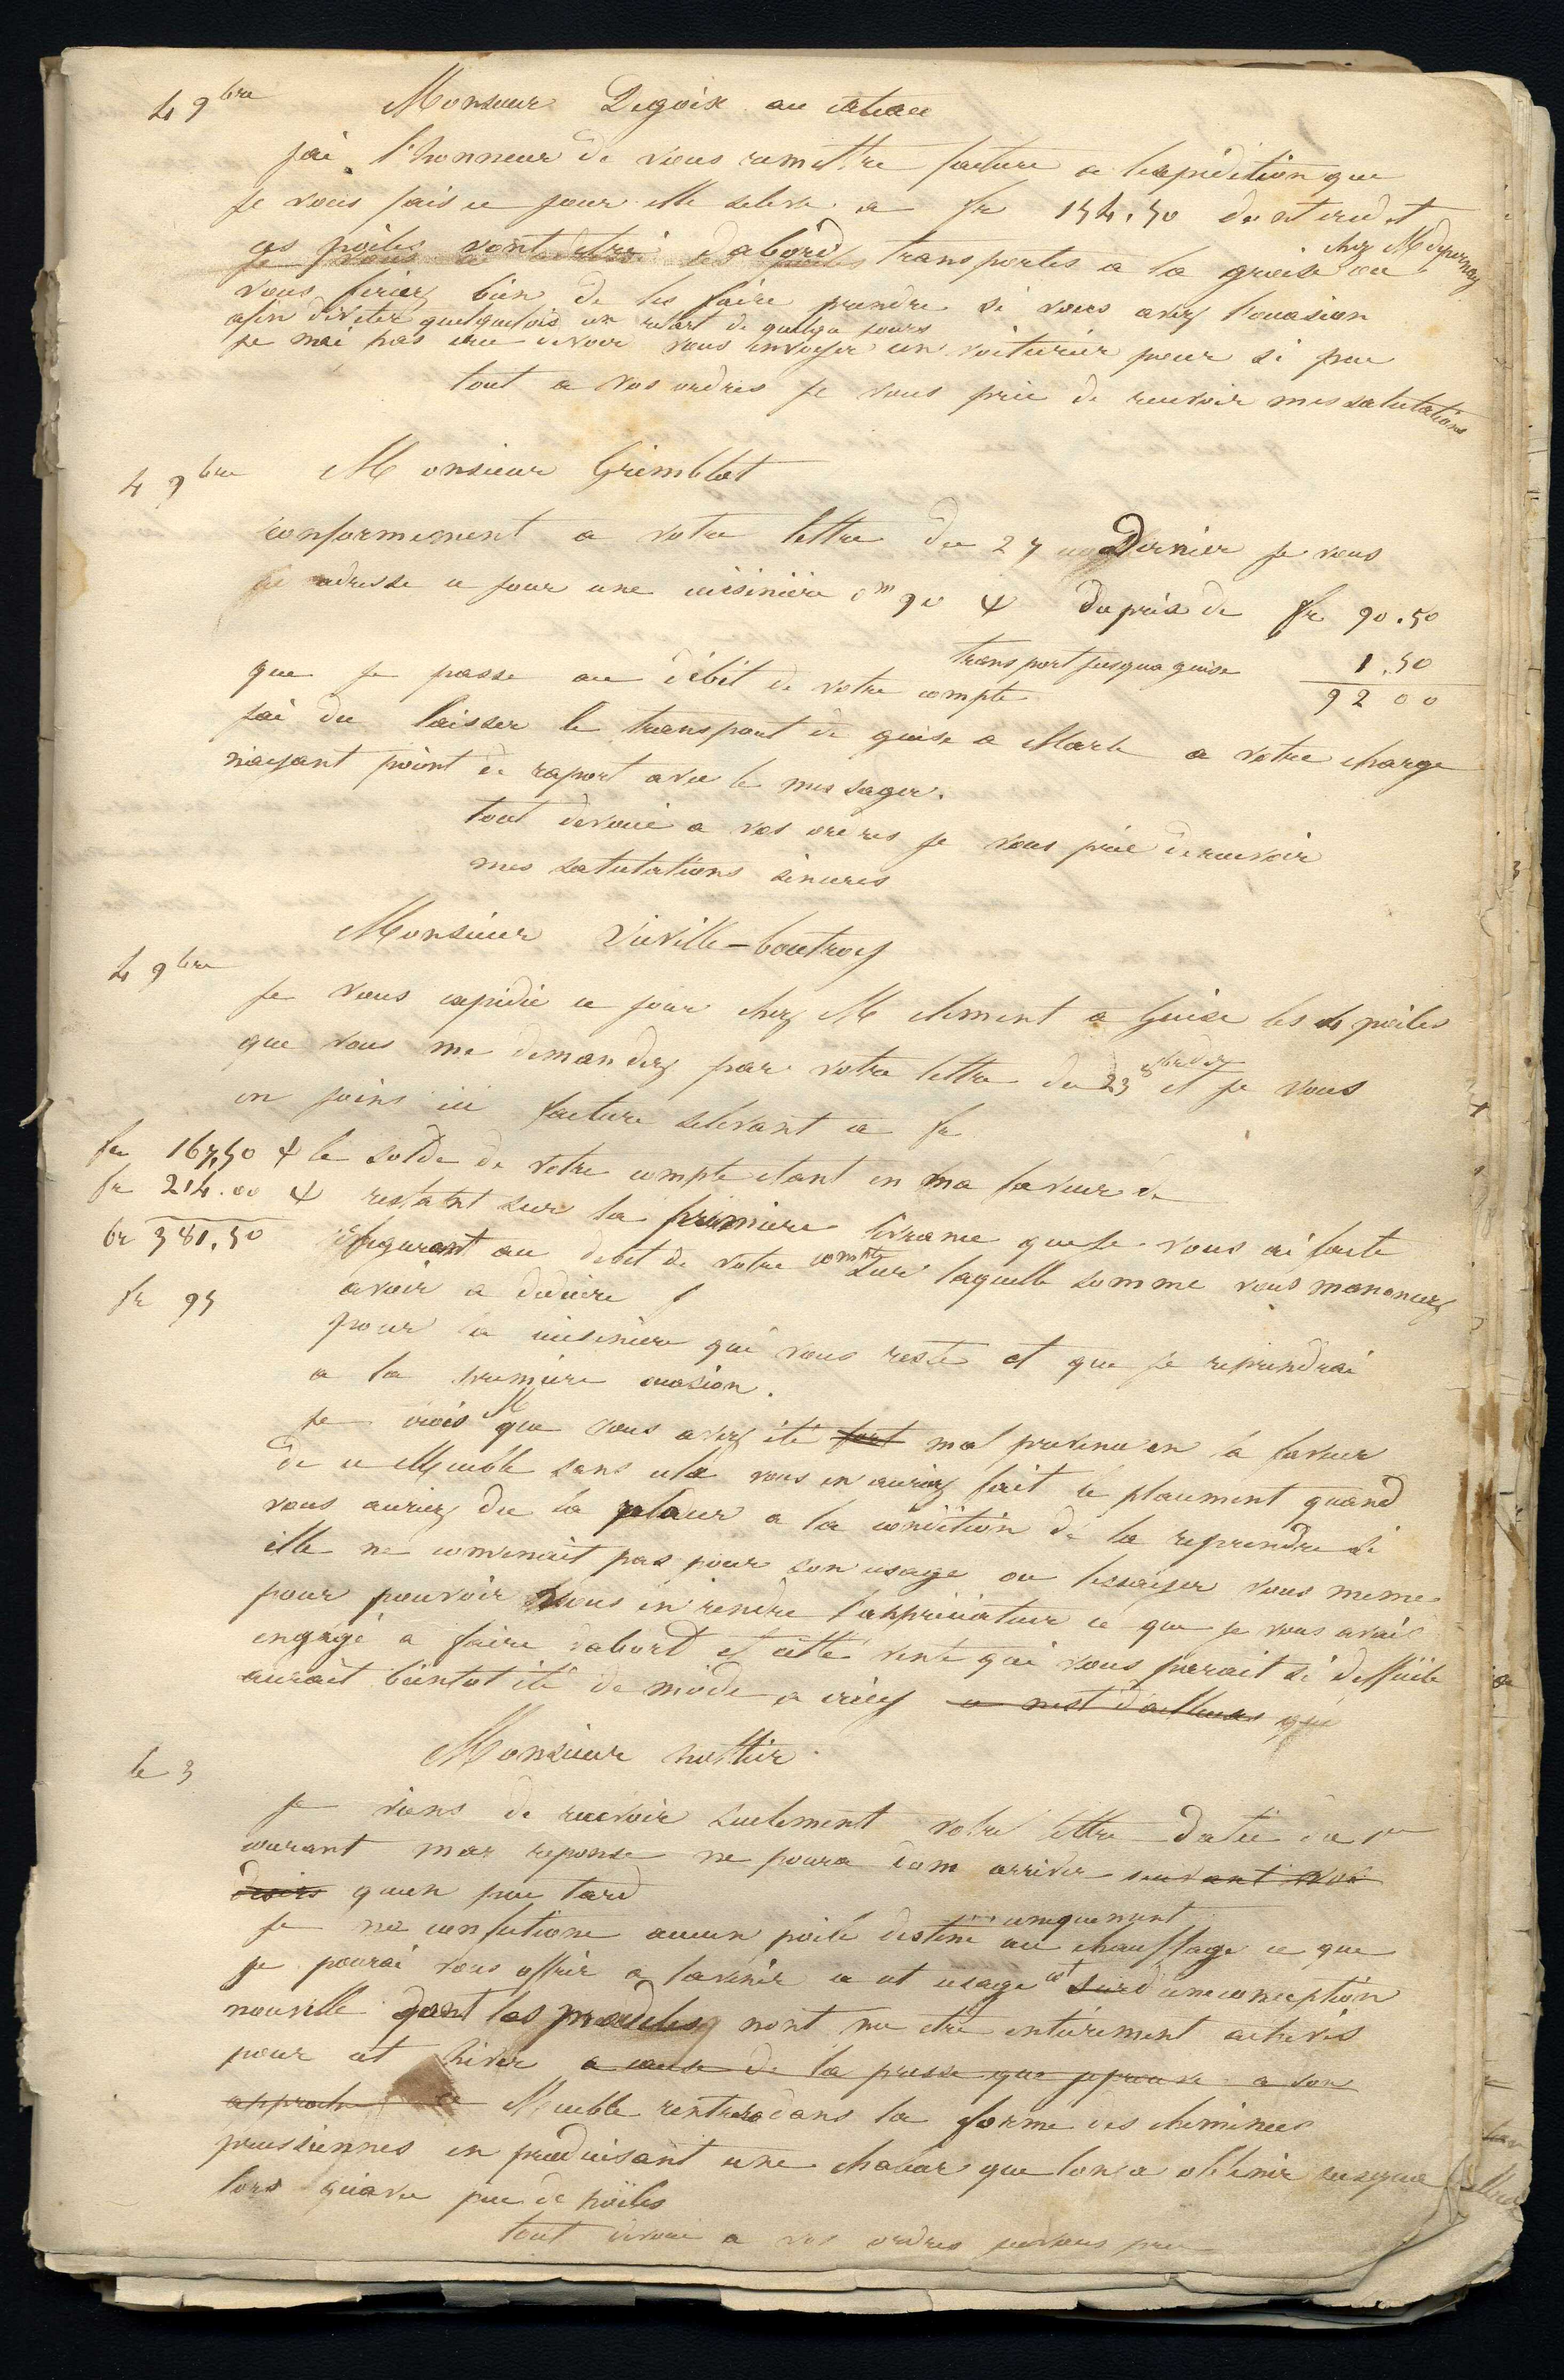 4 9bre Monsieur Degoix au
jai l'honneur de vous remettre facture a lexpédition que
je vous fais ce jour elle seleve a fr 154.50 du et crédit
ces poiles vont etre dabord transportes a la groise chez M depernay ou
vous feriez bien de les faire prendre si vous avez l'ocasion
afin déviter quelquefois un retart de quelque jours
je nai pas cru devoir vous envoyer un voiturier pour si peu
tout a vos ordres je vous prie de recevoir mes salutations
4 9bre Monsieur Grimblot
conformement a votre lettre du 27 dernier je vous
adresse ce jour une cuisiniere 0m 90 du prix de fr 90.50
transport jusqua guise 1.50
que je passe au débit de votre compte 92 00
jai du laisser le transport de guise a Marle a votre charge
nayant point de raport avec le messager.
tout dévoué a vos ordres je vous prie de recevoir
mes salutations sinceres
4 9bre Monsieur Viéville-boutroy
je vous expédie ce jour chez M clement a Guise les 4 poiles
que vous me demandez par votre lettre du 23 8bre der et je vous
en joins ici facture selevant a fr
fr 167,50 le solde de votre compte etant en ma faveur de
fr 214.00 restant sur la premiere livrance que je vous ai faite
fr 381,50 figurant au débit de votre compte sur laquelle somme vous manoncez
fr 95 avoir a deduire
pour la cuisiniere qui vous reste et que je reprendrai
a la premiere ocasion.
je crois M que vous avez été fort mal prevenu en la faveur
de ce Meuble sans cela vous en auriez fait le placement quand
vous auriez du la placer a la condition de la reprendre si
elle ne convenait pas pour son usage ou lessayer vous meme
pour pouvoir vous en rendre lappreciateur ce que je vous avais
engagé a faire dabord et cette vente qui vous parait si difficile
aurait bientot été de mode a crécy ce nest dailleurs que
le 3 Monsieur
je viens de recevoir seulement votre lettre datée du 1er
courant mar reponse ne poura donc arriver suivant vos
desirs quun peu tard
je ne confectionne aucun poile destiné uniquement au chauffage ce que
je pourai vous offrir a lavenir a cet usage est sur dune conception
nouvelle dont les modeles nont pu etre entierement achevés
pour cet hiver a cause de la presse que jeprouve a son
approche ce Meuble rentrera dans la forme des cheminees
prussiennes en produisant une chaleur que lon a obtenir jusqua
lors quavec peu de poiles
tout dévoué a vos ordres je vous prie